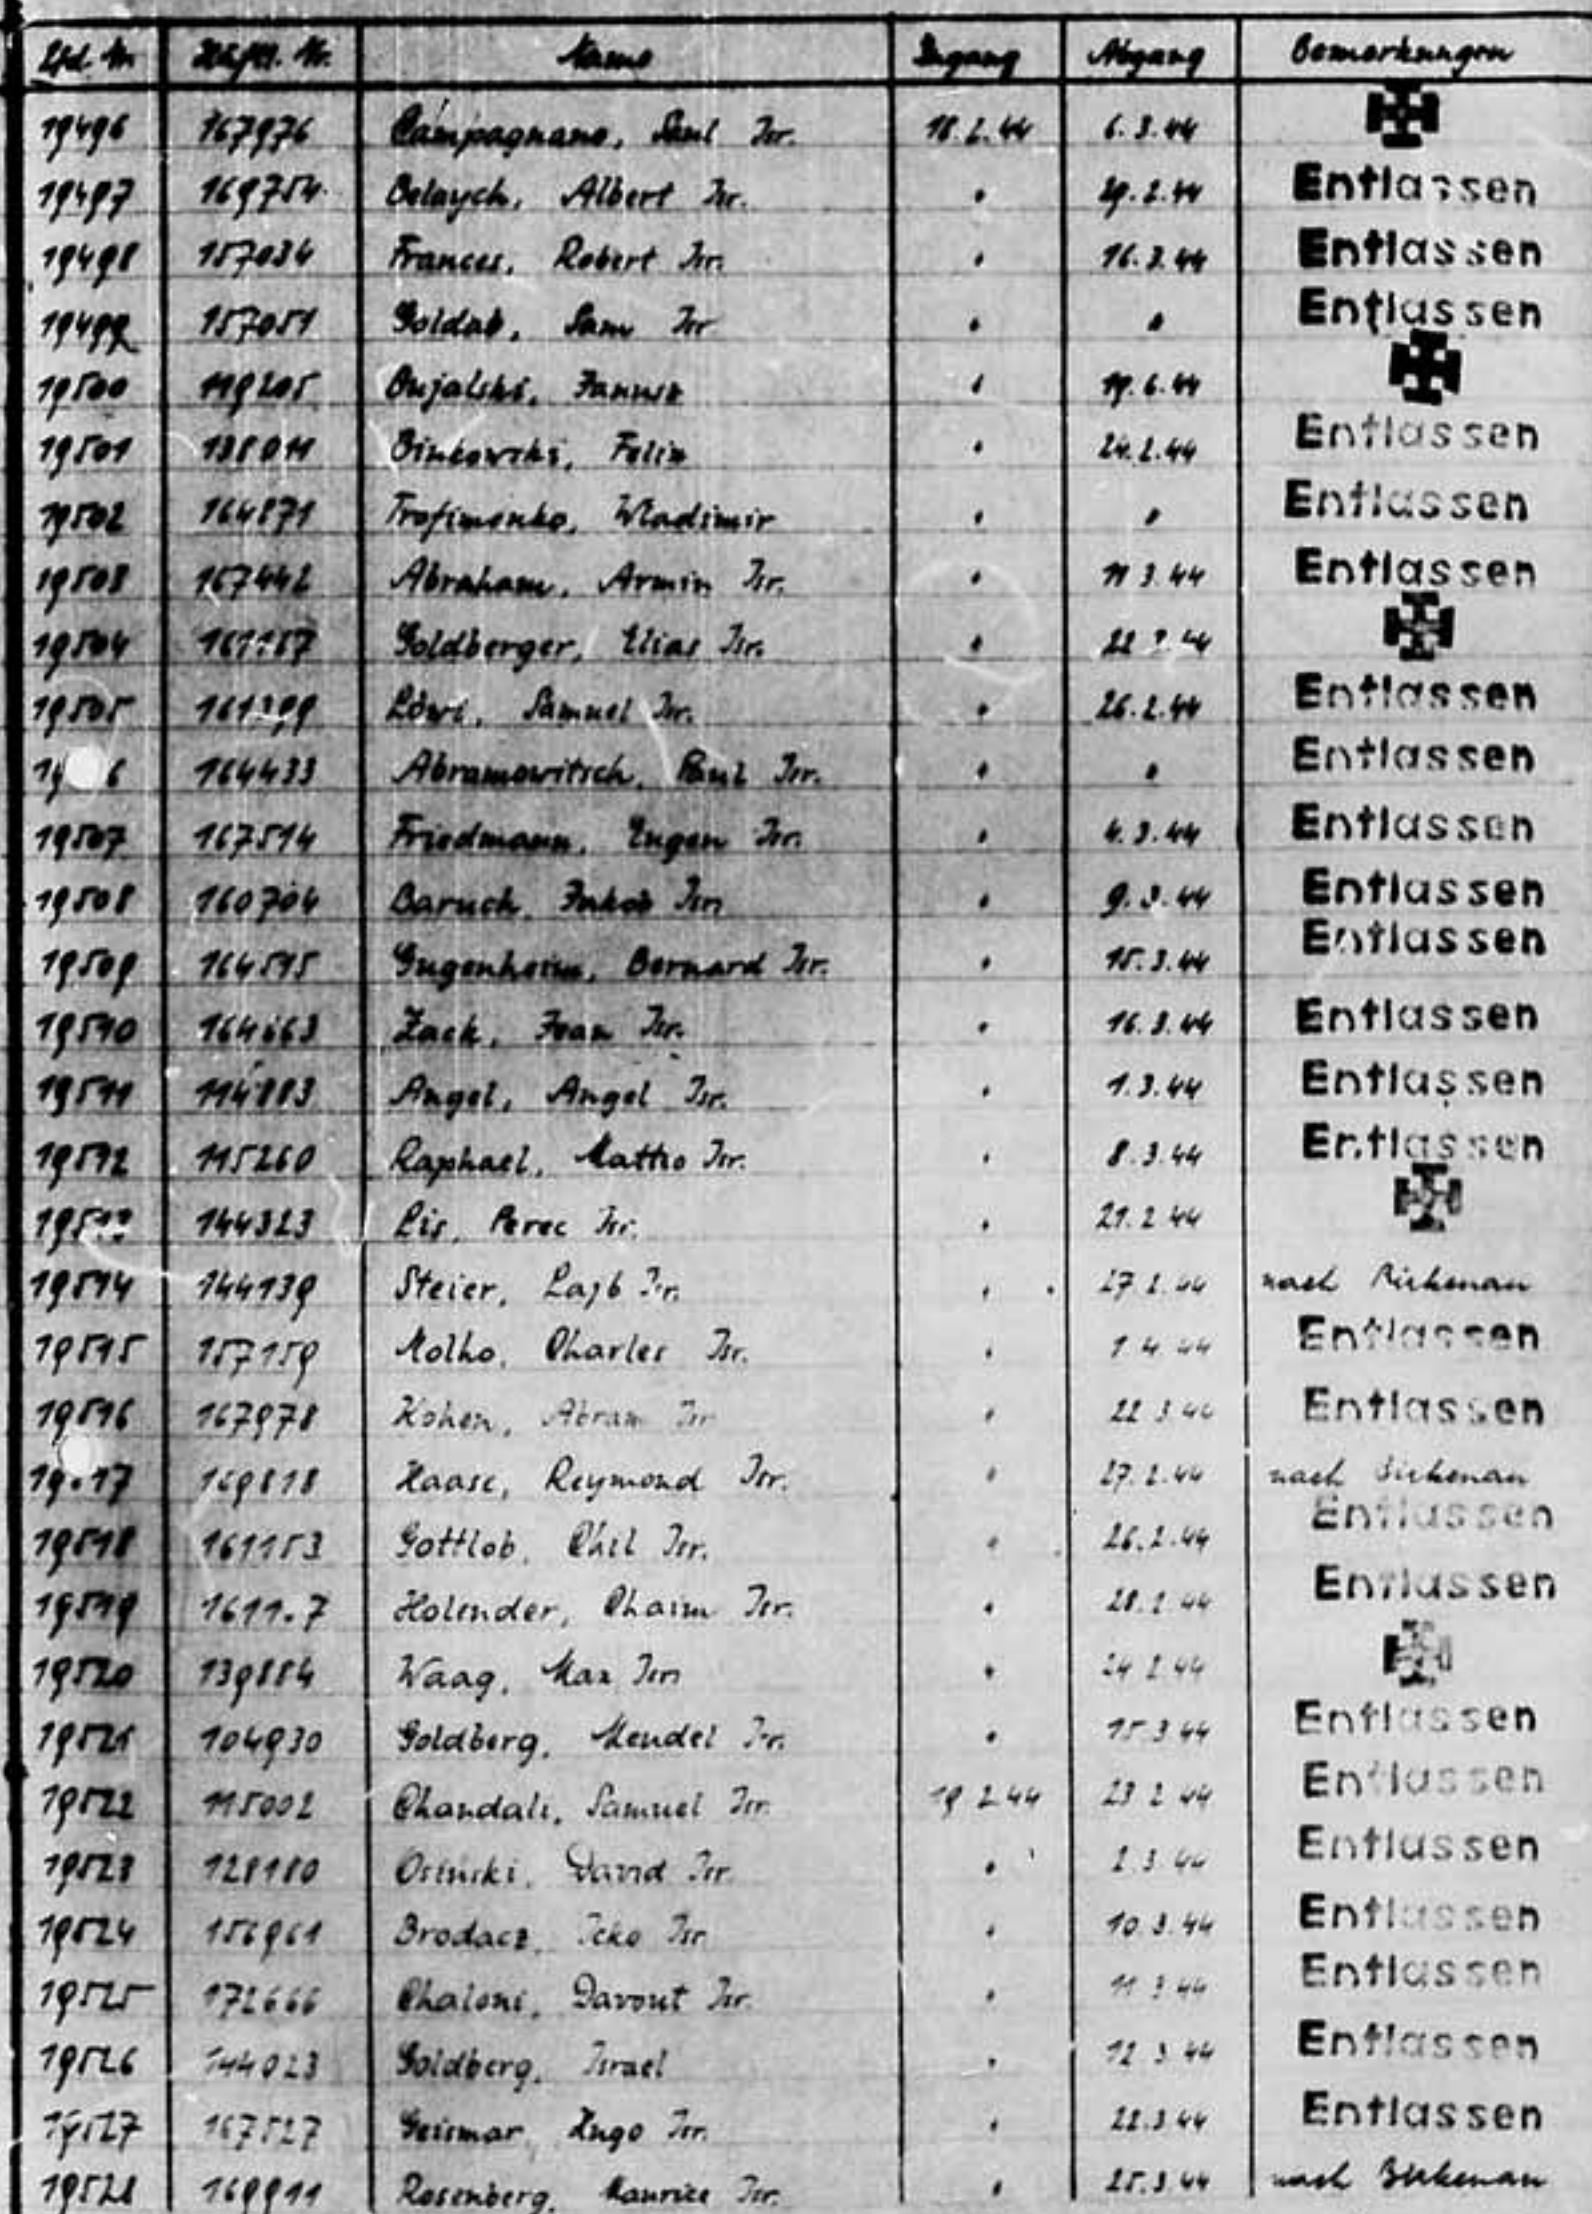 Lfd. Nr. Häftl. Nr. Name Zugang Abgang Bemerkungen
19496 167976 Campagnano, Saul Isr. 18.2.44 6.3.44
19497 169754 Belaych, Albert Isr. " 29.2.44 Entlassen
19498 157034 Frances, Robert Isr. " 16.3.44 Entlassen
19499 157051 Goldab, Sam Isr. " " Entlassen
19500 119205 19.6.44
19501 138011 Binkowski, Felix " 24.2.44 Entlassen
19502 164871 Trofimenko, Wladimir " " Entlassen
19503 167442 Abraham, Armin Isr. " 11.3.44 Entlassen
19504 Goldberger, Elias Isr. " 44
19505 Löwi, Samuel Isr. " 26.2.44 Entlassen
164433 Abramowitsch, Paul Isr. " " Entlassen
19507 167514 Friedmann, Eugen Isr. " 4.3.44 Entlassen
19508 160704 Baruch, Jakob Isr. " 9.3.44 Entlassen
19509 164515 Gugenheim, Bernard Isr. " 15.3.44 Entlassen
19510 164663 Zack, Jean Isr. " 16.3.44 Entlassen
19511 114883 Angel, Angel Isr. " 1.3.44 Entlassen
19512 115260 Raphael, Mattio Isr. " 8.3.44 Entlassen
144323 Lis, Perec Isr. " 21.2.44
19514 144139 Steier, Lajb Isr. " 27.2.44 nach Birkenau
19515 157159 Molho, Charles Isr. " 1.4.44 Entlassen
19516 167978 Kohen, Abram Isr. " 22.3.44 Entlassen
169818 Haase, Reymond Isr. " 27.2.44 nach Birkenau
19518 161153 Gottlob, Chil Isr. " 26.2.44 Entlassen
19519 Holender, Chaim Isr. " 28.2.44 Entlassen
19520 139884 Waag, Max Isr. " 24.2.44
19521 104930 Goldberg, Mendel Isr. " 15.3.44 Entlassen
19522 115002 Chandali, Samuel Isr. 19.2.44 23.2.44 Entlassen
19523 128180 Osinski, David Isr. " 2.3.44 Entlassen
19524 156961 Brodacz, Icko Isr. " 10.3.44 Entlassen
19525 172666 Chaloni, Davout Isr. " 11.3.44 Entlassen
19526 144023 Goldberg, Israel " 12.3.44 Entlassen
19527 167527 Geismar, Hugo Isr. " 22.3.44 Entlassen
19528 169911 Rosenberg, Maurice Isr. " 25.3.44 nach Birkenau